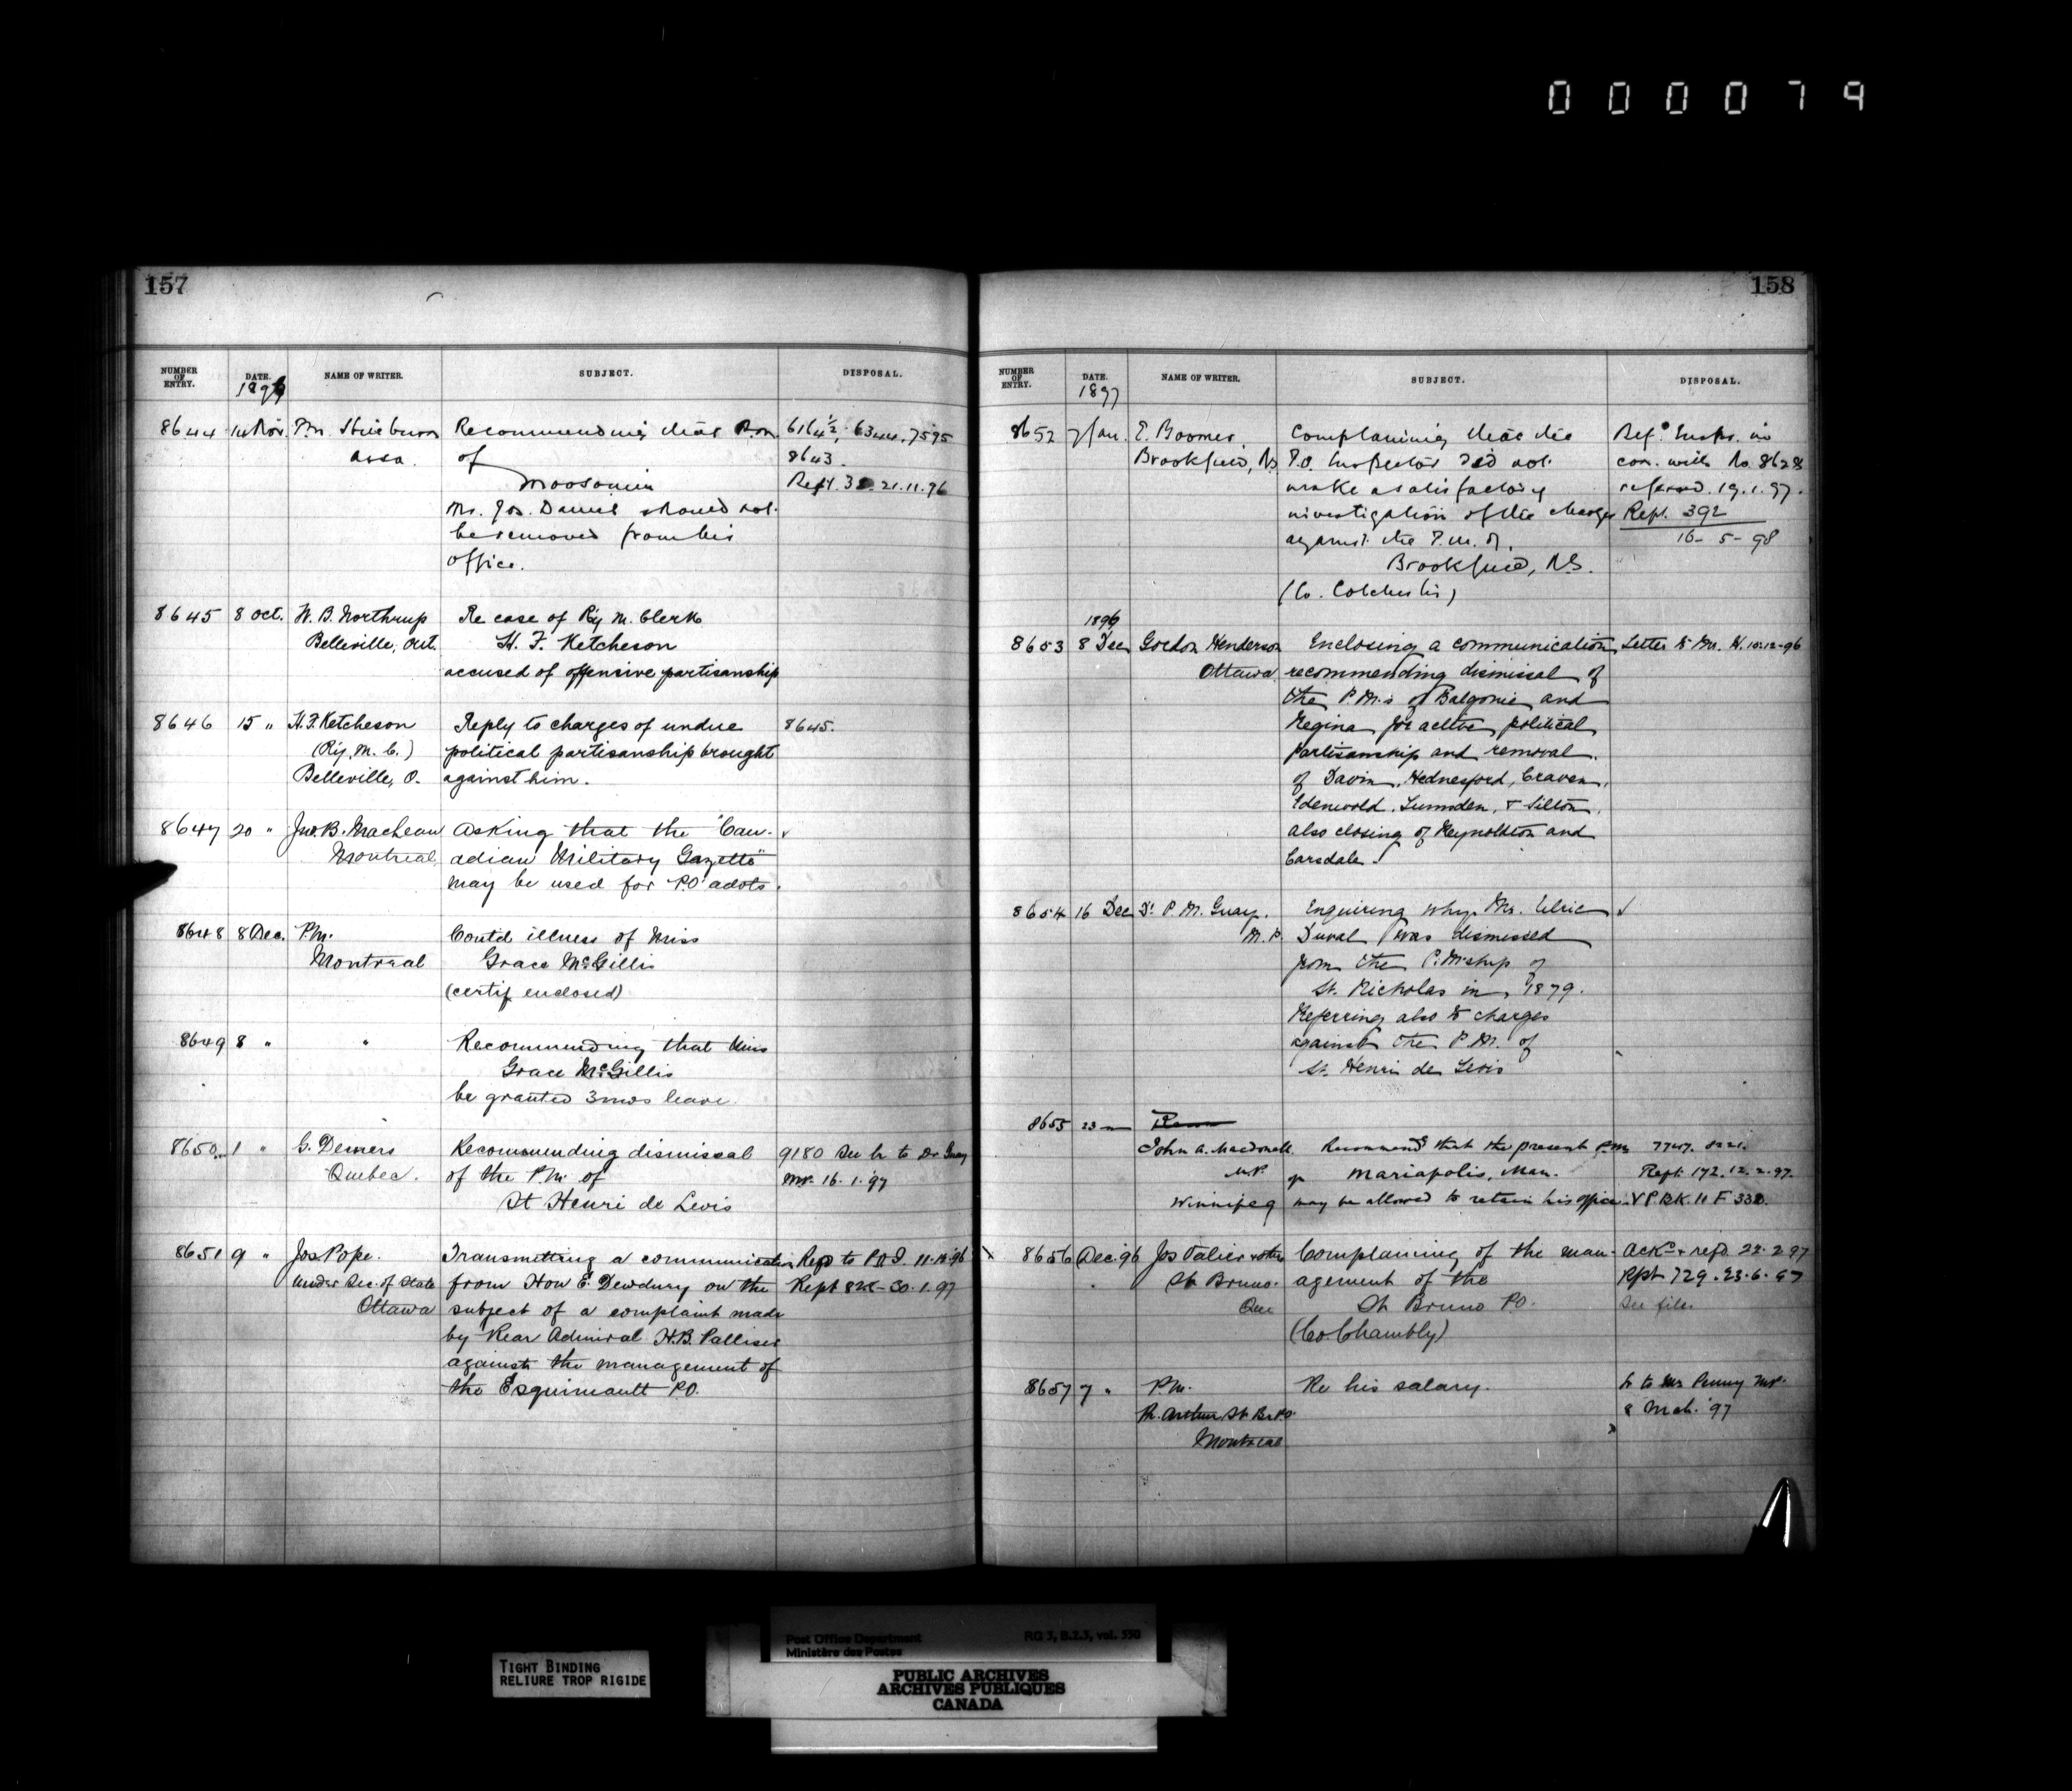 000079
157
NUMBER OF ENTRY. DATE. NAME OF WRITER. SUBJECT. DISPOSAL.
1896
8644 14 Nov. P.M. Recommending that P.M. 6164½, 6344, 7595
Assa. of 8643.
Moosomin Rept. 21.11.96
Mr. Jos. Daniel should not
be removed from his
office.
8645 8 Oct. W. B. Northrup Re case of R'y M. Clerk
Belleville, Ont. H. F. Ketcheson
accused of offensive partisanship
8646 15 " H. F. Ketcheson Reply to charges of undue 8645.
(R'y. M. C.) political partisanship brought
Belleville, O. against him.
8647 20 " Jno. B. Maclean Asking that the "Can-
Montreal adian Military Gazette"
may be used for P.O. advts.
8648 8 Dec. P.M. Contd illness of Miss
Montreal Grace McGillis
(certif enclosed)
8649 8 " " Recommending that Miss
Grace McGillis
be granted 3 mos leave.
8650 1 " G. Demers Recommending dismissal 9180 See Lr to Dr Guay
Quebec. of the P.M. of MP. 16.1.97
St Henri de Levis
8651 9 " Jos Pope. Transmitting a communication Refd to P.O.I. 11.12.96
Under Sec. of State from Hon E. Dewdney on the Rept 30.1.97
Ottawa subject of a complaint made
by Rear Admiral H.B. Palliser
against the management of
the Esquimault P.O.
158
NUMBER OF ENTRY. DATE. NAME OF WRITER. SUBJECT. DISPOSAL.
1897
8652 7 Jan. E. Boomer, Complaining that the Refd Inspr. in
Brookfield, NS P.O. Inspector did not con. with No. 8628
make a satisfactory referred. 19.1.97.
investigation of the charges Rept. 392
against the P.M. of 16-5-98
Brookfield, N.S.
(Co. Colchester)
1896
8653 8 Dec Gordon Henderson Enclosing a communication Letter to Mr. H. 10-12-96
Ottawa recommending dismissal of
the P.M.s of Balgonie and
Regina for active political
partisanship and removal
of Davin, Hednesford, Craven,
Edenwold, Lumsden, & Silton,
also closing of Reynoldton and
Carsdale.
8654 16 Dec Dr P. M. Guay. Enquiring why Mr. Ulric ✓
M.P. Duval was dismissed
from the P.M'ship of
St. Nicholas in 1879.
Referring also to charges
against the P.M. of
St. Henri de Levis
8655 23
John A. Macdonell Recommends that the present P.M. 7747. 8221.
M.P. of Mariapolis, Man. Rept. 172. 12.2.97.
Winnipeg may be allowed to retain his office. V P.Bk. 11 F 338.
8656 Dec. 96 Jos Valier & others Complaining of the man- Ackd & refd. 22.2.97
St Bruno. agement of the Rpt 729. 23.6.97
Que St Bruno P.O. See file.
(Co. Chambly)
8657 7 " P.M. Re his salary. Lr to Mr Penny M.P.
St. Montreal 8 Mch. '97
TIGHT BINDING
RELIURE TROP RIGIDE
Post Office Department RG 3, B.2.3, vol. 550
Ministère des Postes
PUBLIC ARCHIVES
ARCHIVES PUBLIQUES
CANADA